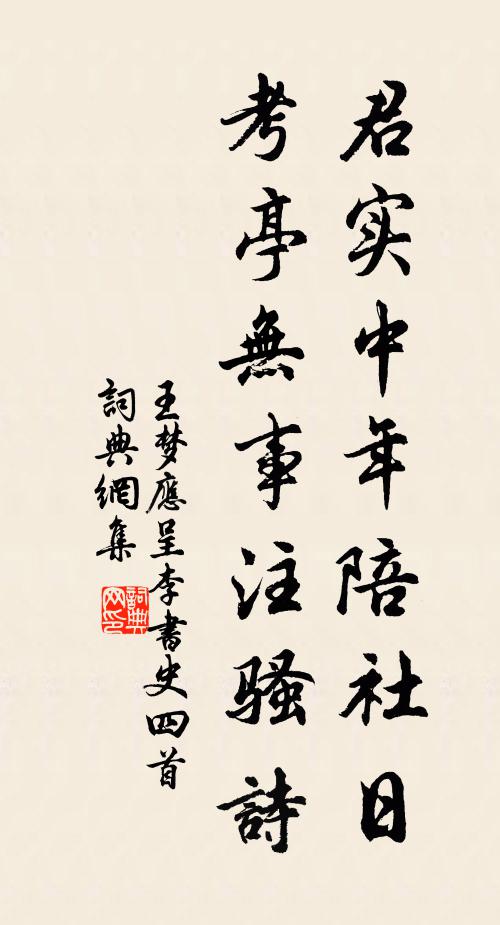 君实中年陪社日
考亭無事注騷詩
王梦應呈李書史四首
詞典網集
詞典
网印